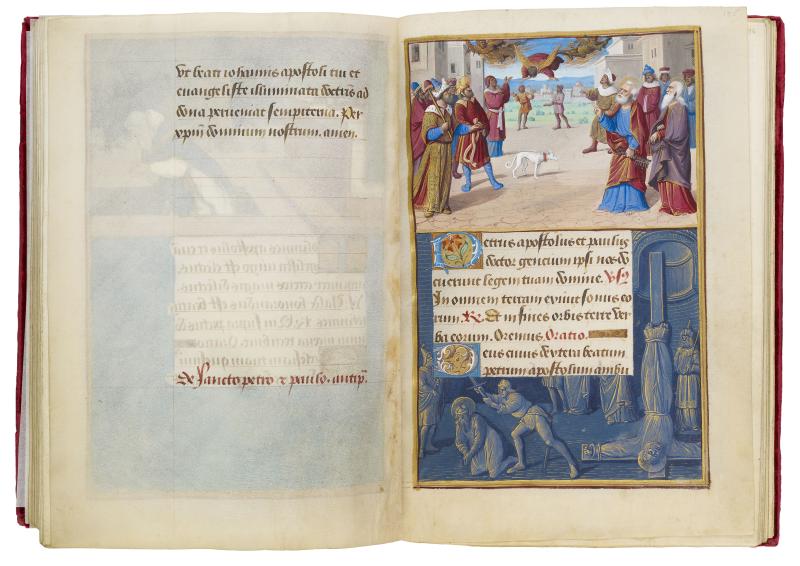 Vt beati iohannis apostoli tui et
euangeliste illuminata doctrinis ad
dona perueniat sempiterna. Per
xpm dominum nostrum. amen.
De sancto petro et paulo. antiph.
Petrus apostolus et paulus
doctor gencium ipsi nos do
cuerunt legem tuam domine. Vs.
In omnem terram exiuit sonus eo
rum. R. Et in fines orbis terre ver
ba eorum. Oremus. Oratio.
Deus cuius dextera beatum
petrum apostolum ambu